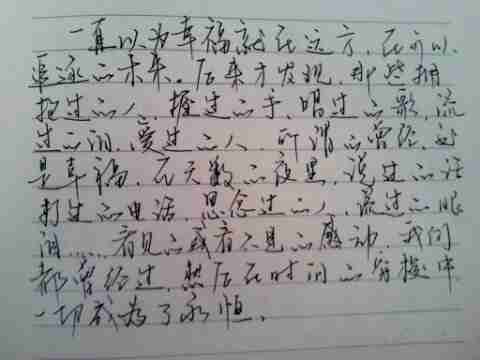 一直以为幸福就在远方，在可以
追逐的未来。后来才发现，那些拥
抱过的人，握过的手，唱过的歌，流
过的泪，爱过的人，所谓的曾经，就
是幸福。在无数的夜里，说过的话
打过的电话，思念过的人，流过的眼
泪……看见的或看不见的感动，我们
都曾经过，然后在时间的穿梭中
一切成为了永恒。